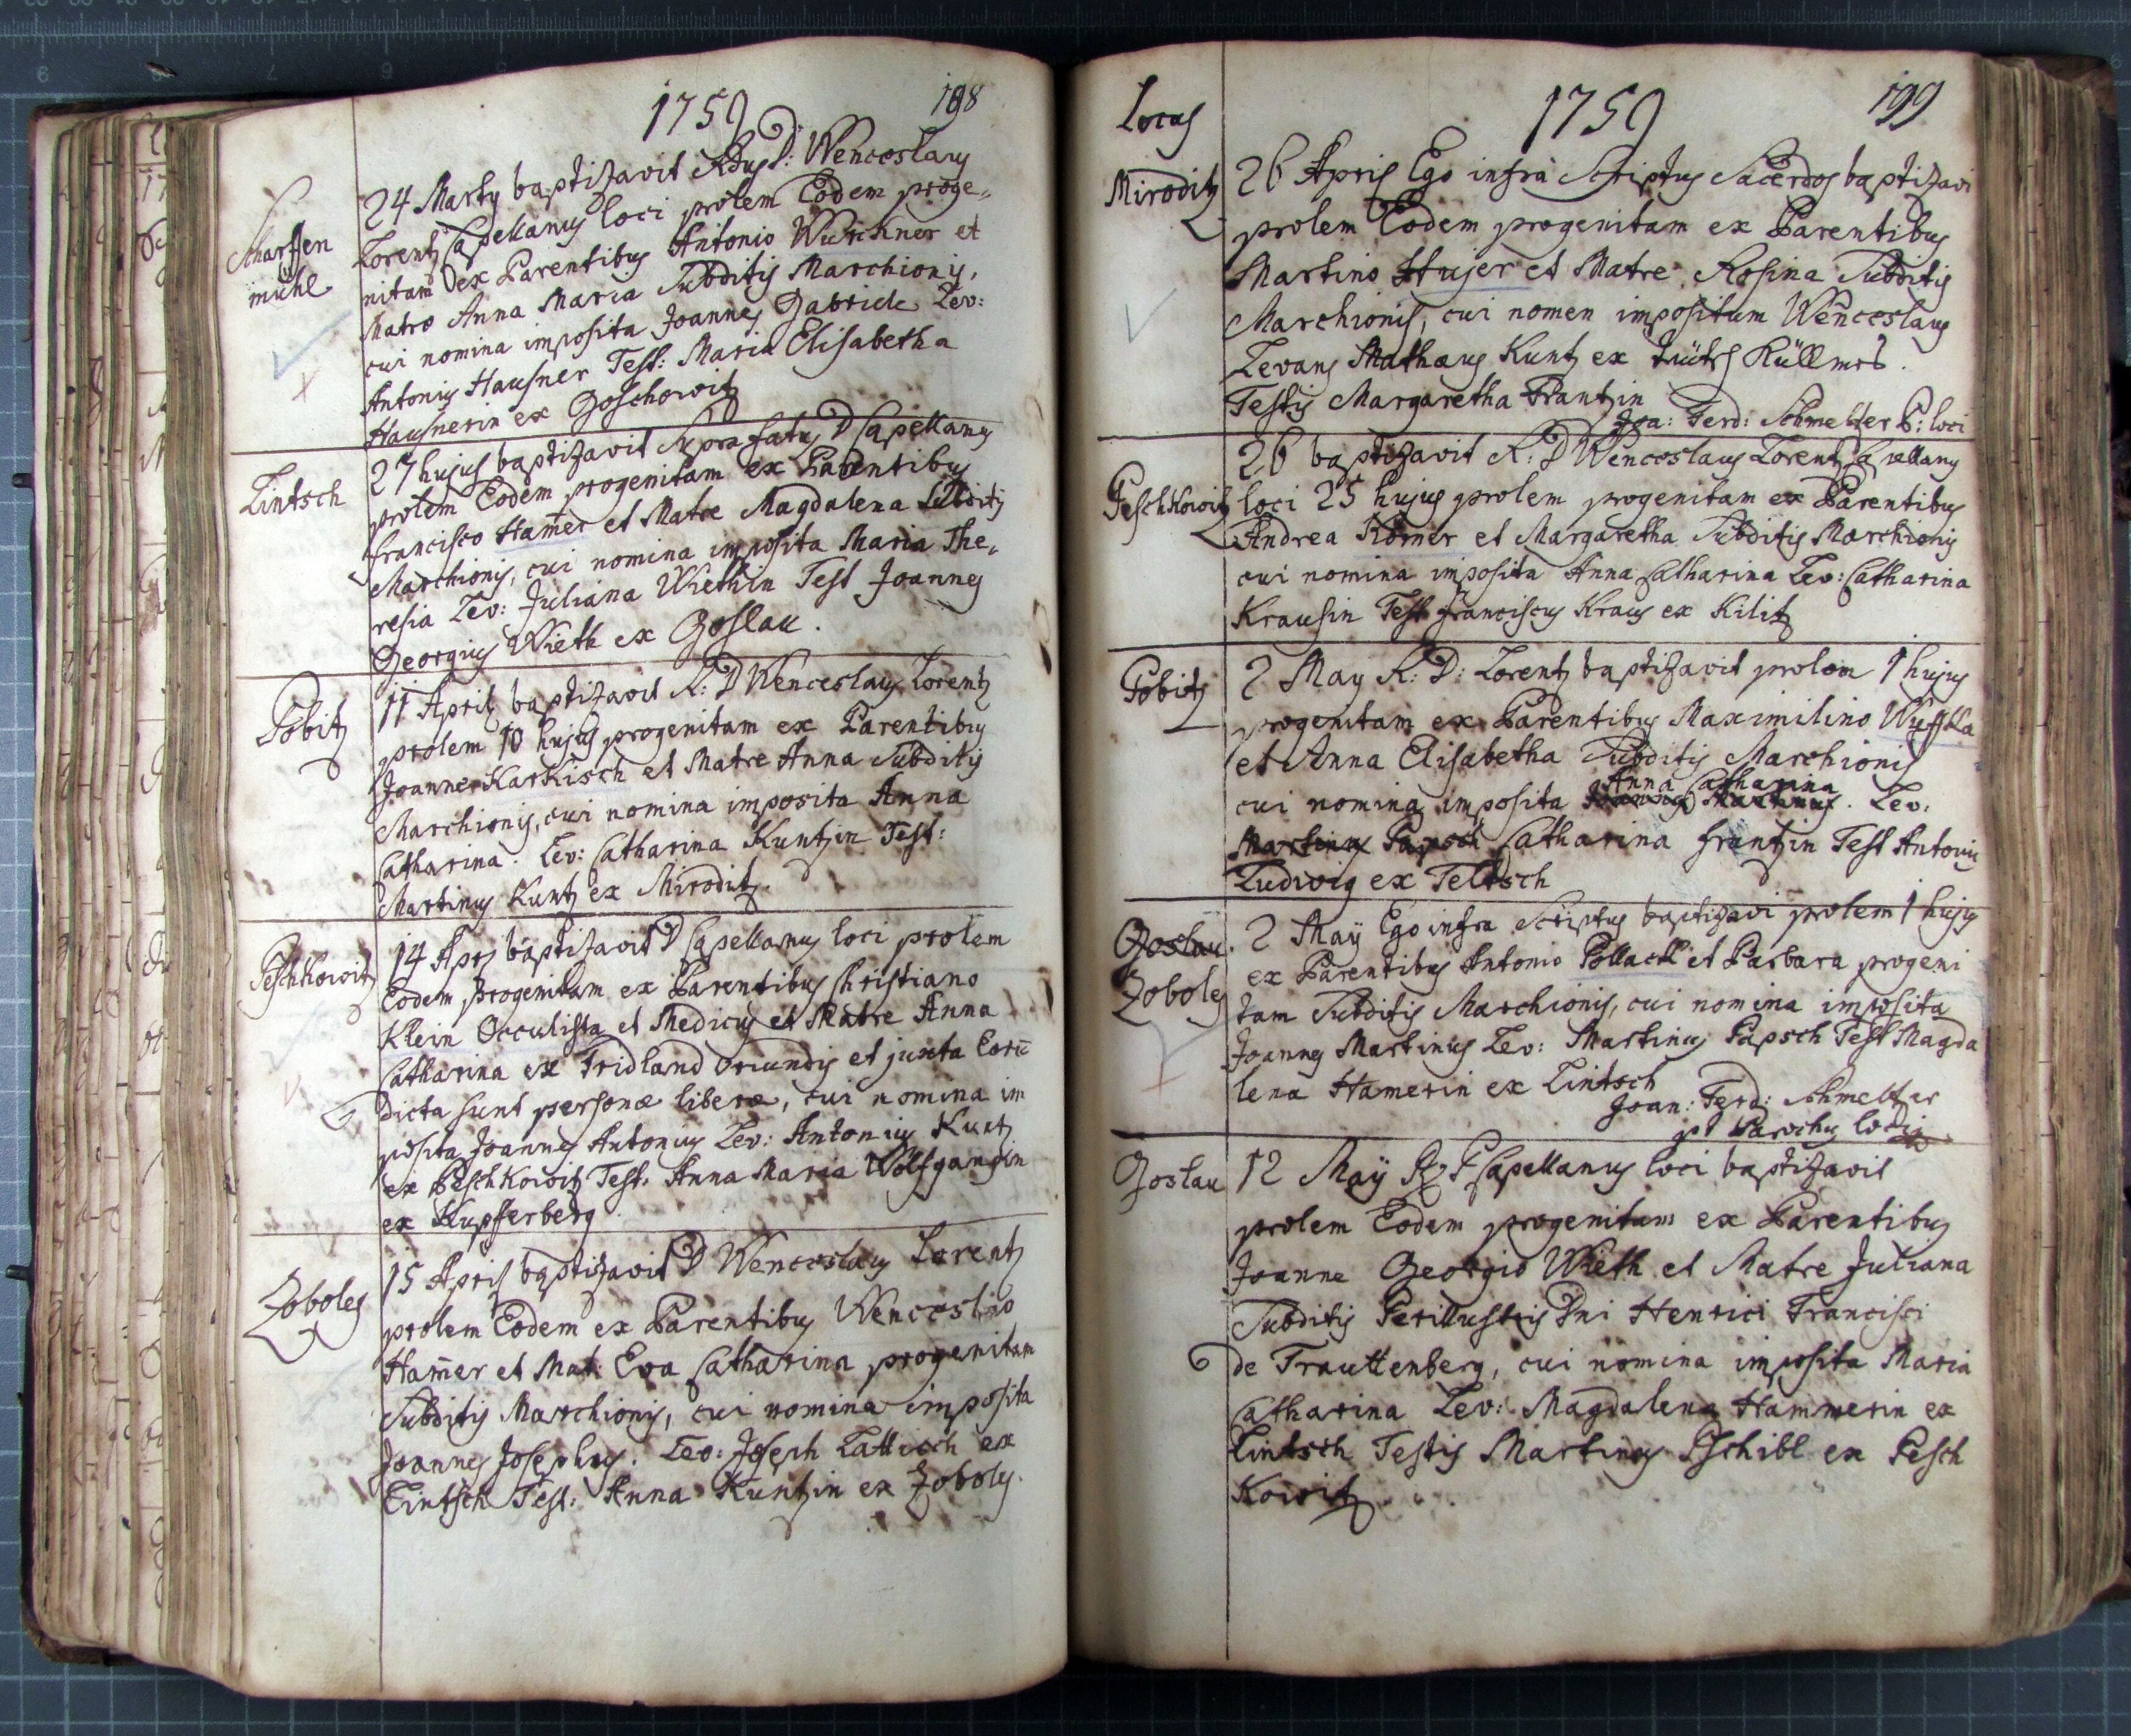 1759
198
Scharffen
mühl
24 Martÿ baptizavit Rdus D: Wenceslaus
Lorentz Capellanus loci prolem Eodem proge„
nitam ex Parentibus Antonio Wurschner et
Matre Anna Maria Subditis Marchionis,
cui nomina imposita Joannes Gabriel. Lev:
Antonius Hausner Test: Maria Elisabetha
Hausnerin ex Goschowitz
Lintsch
27 hujus baptizavit Supra fatus D Capellanus
prolem Eodem progenitam ex Parentibus
Francisco Ham̄er et Matre Magdalena Subditis
Marchionis, cui nomina imposita Maria The„
resia Lev: Juliana Wiethin Test Joannes
Georgius Wieth ex Goslau.
Pobitz
11 April baptizavit R: D Wenceslaus Lorentz
prolem 10 hujus progenitam ex Parentibus
Joanne Karkisch et Matre Anna Subditis
Marchionis, cui nomina imposita Anna
Catharina. Lev: Catharina Kuntzin Test:
Martinus Kuntz ex Miroditz.
Peschkowitz
14 Apr baptizavit D Capellanus loci prolem
Eodem progenitam ex Parentibus Christiano
Klein Occulista et Medicus et Matre Anna
Catharina ex Fridland Oriundis et juxta Eorū
dicta sunt personæ liberæ, cui nomina im
posita Joannes Antonius Lev: Antonius Kuntz
ex Peschkowitz Test. Anna Maria Wolfgangin
ex Kupferberg
Zoboles
15 Apris baptizavit D Wenceslaus Lorentz
prolem Eodem ex Parentibus Wenceslao
Ham̄er et Mat: Eva Catharina progenitam
Subditis Marchionis, cui nomina imposita
Joannes Josephus. Lev: Joseph Lattisch ex
Lintsch Test: Anna Kuntzin ex Zoboles.
Locus
1759
199
Miroditz
26 Apris Ego infra Scriptus Sacerdos baptizavi
prolem Eodem progenitam ex Parentibus
Martino Stujer et Matre Rosina Subditis
Marchionis, cui nomen impositum Wenceslaus
Levans Mathæus Kuntz ex
Testis Margaretha Frantzin
Joa: Ferd: Schmeltzer P: loci
Peschkowitz
26 baptizavit R: D Wenceslaus Lorentz Capellanus
loci 25 hujus prolem progenitam ex Parentibus
Andrea Römer et Margaretha Subditis Marchionis
cui nomina imposita Anna Catharina Lev: Catharina
Krausin Test Franciscus Kraus ex Kilitz
Pobitz
2 May R: D: Lorentz baptizavit prolem 1 hujus
progenitam ex Parentibus Maximilino Wuschka
et Anna Elisabetha Subditis Marchionis
Anna Catharina
cui nomina imposita Joannes Martinus. Lev:
Martinus Papsch Catharina Frantzin Test Antonius
Ludwig ex Teltsch
Goslau.
Zoboles
2 Maÿ Ego infra Scriptus baptizavi prolem 1 hujus
ex Parentibus Antonio Pollack et Barbara progeni
tam Subditis Marchionis, cui nomina imposita
Joannes Martinus Lev: Martinus Papsch Test Magda
lena Hamerin ex Lintsch
Joan: Ferd: Schmeltzer
pt Parochus loci
Goslau
12 Maÿ Capellanus loci baptizavit
prolem Eodem progenitam ex Parentibus
Joanne Georgio Wieth et Matre Juliana
Subditis Perillustris Dni Henrici Francisci
de Trauttenberg, cui nomina imposita Maria
Catharina Lev: Magdalena Hammerin ex
Lintsch Testis Martinus Pschibl ex Pesch
kowitz